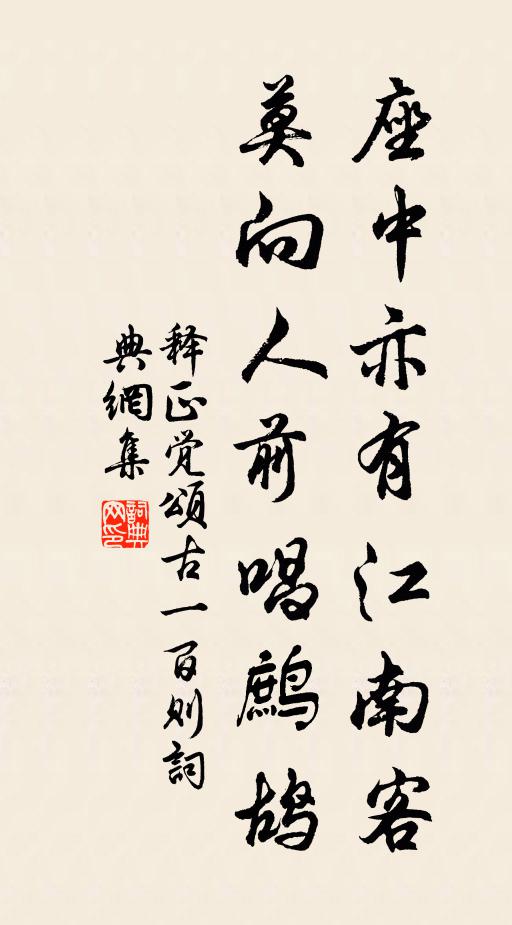 座中亦有江南客
莫向人前唱鷓鴣
释正觉頌古一百则詞
典網集
詞典
网印